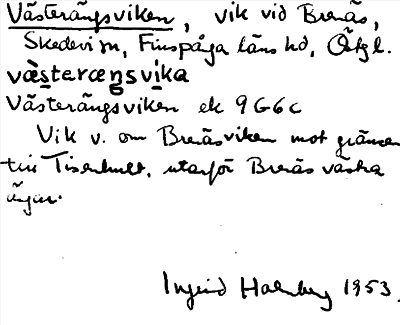 Västerängsviken, vik vid Brenäs,
Skedevi sn, Finspånga läns hd, Östgl.
væ̀steræŋsvi̇ka
Västerängsviken ek 9G6c
Vik v. om Brenäsviken mot gränsen
till Tisenhult, utanför Brenäs västra
ängar.
Ingrid Holmberg 1953.